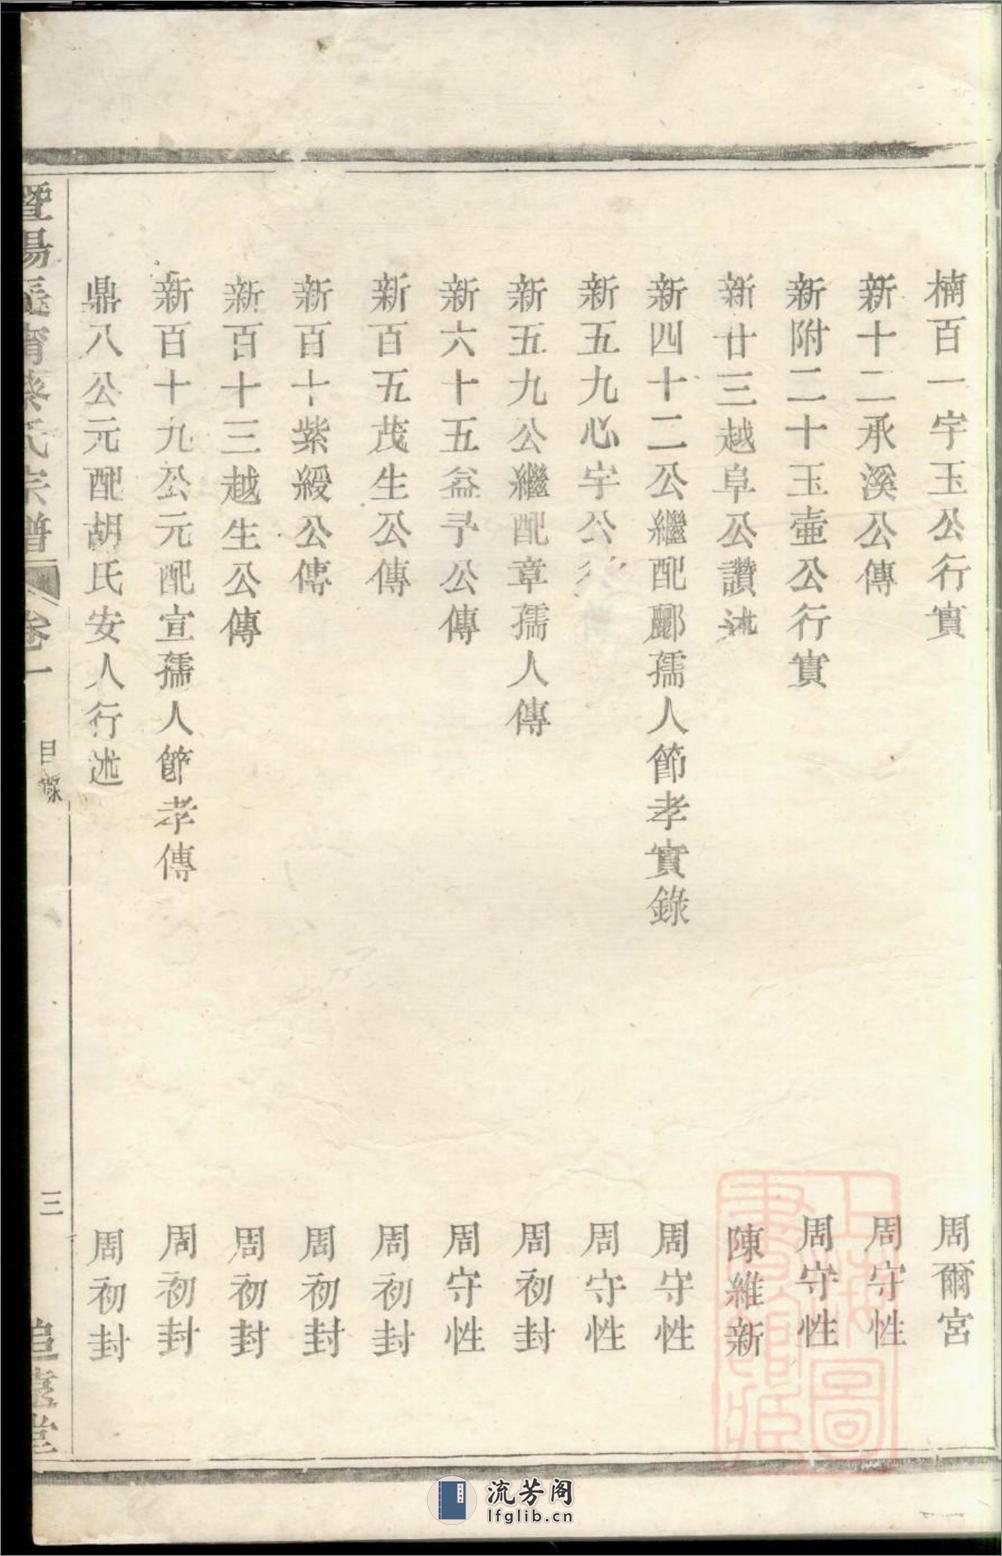 楠百一宇玉公行實 周爾宮
新十二承溪公傳 周守性
新附二十玉壷公行實 周守性
新廿三越阜公讚述 陳維新
新四十二公繼配酈孺人節孝實錄 周守性
新五九心宇公 周守性
新五九公繼配章孺人傳 周初封
新六十五益予公傳 周守性
新百五茂生公傳 周初封
新百十紫綬公傳 周初封
新百十三越生公傳 周初封
新百十九公元配宣孺人節孝傳 周初封
鼎八公元配胡氏安人行述 周初封
暨陽 蔡氏宗譜 卷一 目錄 三 追遠堂
上海圖書館藏
流芳阁
lfglib.cn